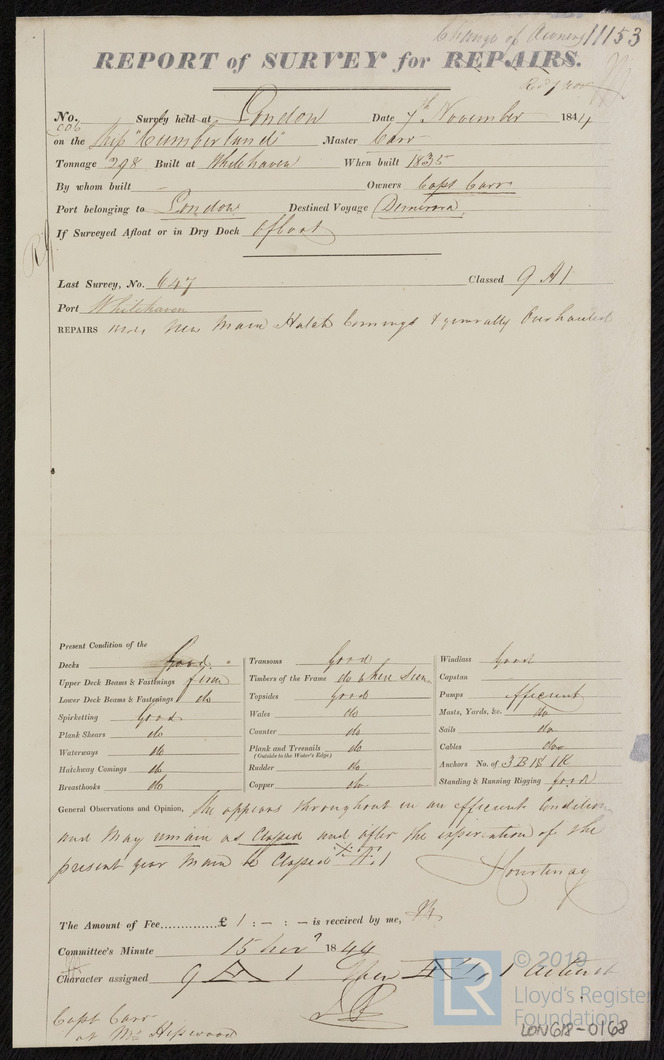 Change of Owners 11153
REPORT of SURVEY for REPAIRS.
No. 606 Survey held at London Date 7th November 1844
on the Ship "Cumberland" Master Carr
Tonnage 298 Built at Whitehaven When built 1835
By whom built - Owners Capt Carr
Port belonging to London Destined Voyage Demerara
If Surveyed Afloat or in Dry Dock Afloat
Last Survey, No. 647 Classed 9 A 1
Port Whitehaven
REPAIRS now New Main Hatch Comings & generally Overhauled
Present Condition of the
Decks Good
Upper Deck Beams & Fastenings firm
Lower Deck Beams & Fastenings do
Spirketting Good
Plank Shears do
Waterways do
Hatchway Comings do
Breasthooks do
Transoms Good
Timbers of the Frame do where Seen
Topsides good
Wales do
Counter do
Plank and Treenails do
(Outside to the Water's Edge)
Rudder do
Copper do
Windlass Good
Capstan
Pumps efficient
Masts, Yards, &c. do
Sails do
Cables do
Anchors No. of 3 B 1 S 1 K
Standing & Running Rigging good
General Observations and Opinion, She appears throughout in an efficient Condition
and May remain as Classed and after the expiration of the
present year Main be Classed Æ 1
Courtenay
The Amount of Fee..............£ 1 : - : - is received by me,
Committee's Minute 15 Novr 1844
Character assigned 9 A 1
Capt Carr
at Mr Hepwood
© 2019
Lloyd's Register
Foundation
LR
LON618-0168